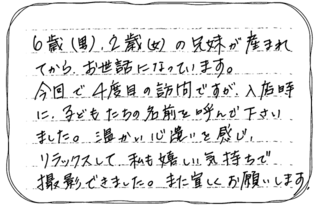 6歳(男)、2歳(女)の兄妹が産まれ
てから、お世話になっています。
今回で4度目の訪問ですが、入店時
に、子どもたちの名前を呼んで下さい
ました。温かい心遣いを感じ、
リラックスして、私も嬉しい気持ちで
撮影できました。また宜しくお願いします。